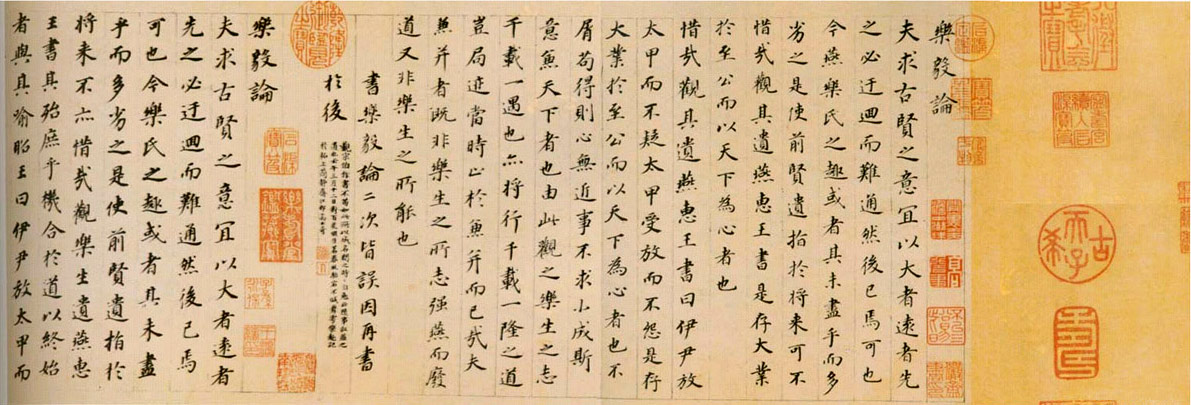 樂毅論
夫求古賢之意冝以大者遠者先
之必迂迴而難通然後已焉可也
今燕樂氏之趣或者其未盡乎而多
劣之是使前賢遺指於将来可不
惜㦲觀其遺燕惠王書是存大業
於至公而以天下為心者也
惜㦲觀其遺燕惠王書曰伊尹放
太甲而不疑太甲受放而不怨是存
大業於至公而以天下為心者也不
屑苟得則心無近事不求小成斯
意兼天下者也由此觀之樂生之志
千載一遇也亦将行千載一隆之道
豈局迹當時止於兼并而已㦲夫
兼并者既非樂生之所志强燕而廢
道又非樂生之所能也
書樂毅論二次皆誤因再書
於後
樂毅論
夫求古賢之意冝以大者遠者
先之必迂迴而難通然後已焉
可也今樂氏之趣或者其未盡
乎而多劣之是使前賢遺指於
将来不亦惜㦲觀樂生遺燕惠
王書其殆庶乎機合於道以終始
者與其喻昭王曰伊尹放太甲而
古希天子